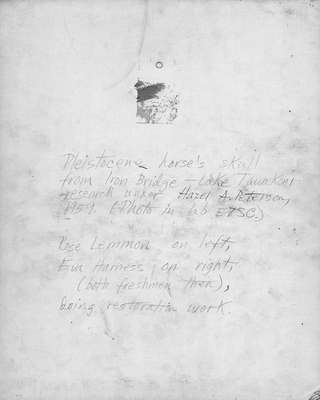 Pleistocene horse's skull
from Iron Bridge - Lake Tawakoni
research under Hazel A. Peterson,
1959. (Photo in lab ETSC.)
Rose Lemmon on left,
Eva Harness on right,
(both freshmen then),
doing restoration work.